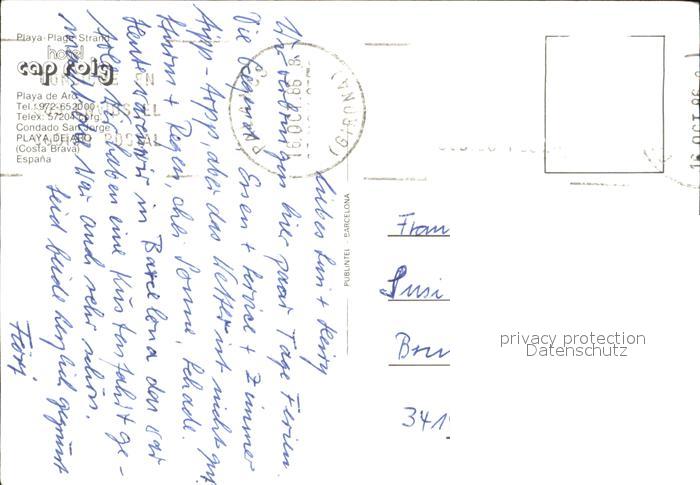 Playa-Plage-Strand
hotel
cap roig
Playa de Aro
Tel.: 972-652000
Telex: 57204 corg
Condado San Jorge
PLAYA DE ARO
(Costa Brava)
España
16 OCT 86
(GIRONA)
PUBLINTEL - BARCELONA
Wir verbringen hier paar Tage Ferien.
Die Gegend Essen + Service + Zimmer
Aipp-Aipp, aber das Wetter ist nicht gut
Sturm + Regen, chli Sonne, schade.
Heute waren wir in Barcelona das war
toll. Wir haben eine Küstenfahrt ge-
war auch sehr schön.
Seid beide herzlich gegrüsst
Frau
Susi
341
privacy protection
Datenschutz